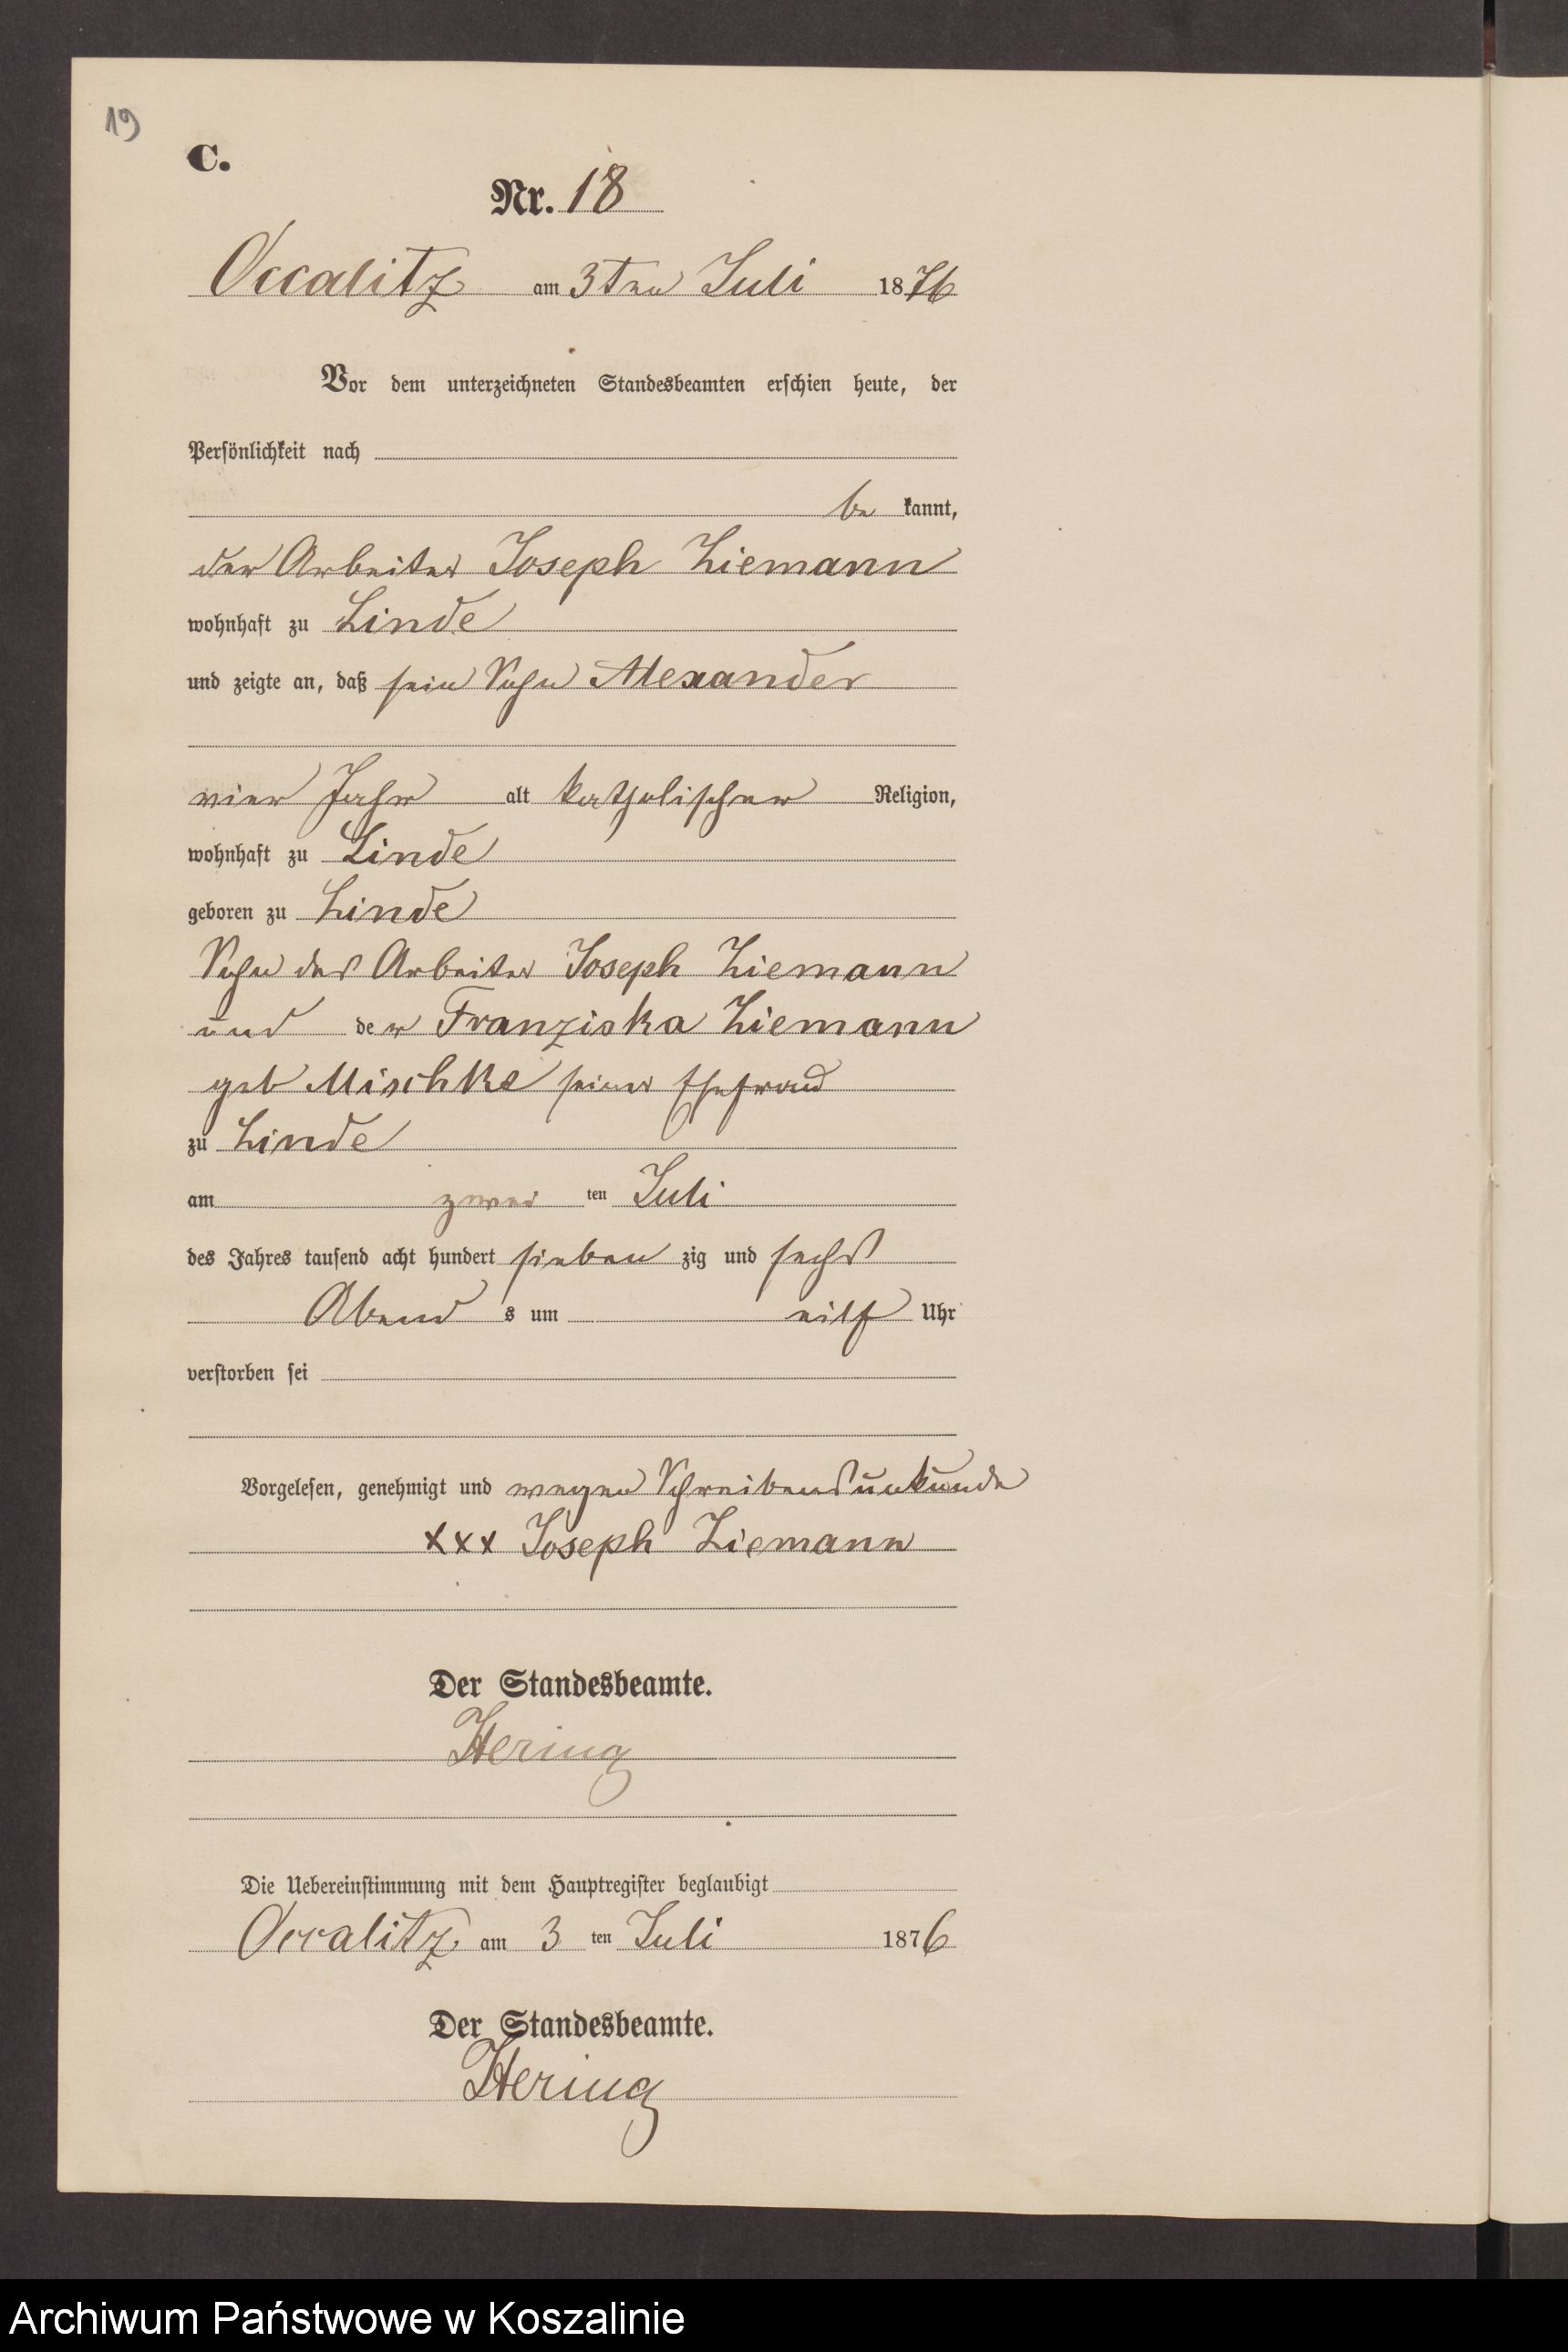 19
C.
Nr. 18
Occalitz am 3ten Juli 1876
Vor dem unterzeichneten Standesbeamten erschien heute, der
Persönlichkeit nach
be kannt,
der Arbeiter Joseph Ziemann
wohnhaft zu Linde
und zeigte an, daß sein Sohn Alexander
vier Jahr alt katholischer Religion,
wohnhaft zu Linde
geboren zu Linde
Sohn des Arbeiter Joseph Ziemann
und der Franziska Ziemann
geb Mischke seiner Ehefrau
zu Linde
am zwei ten Juli
des Jahres tausend acht hundert sieben zig und sechs
Abend s um eilf Uhr
verstorben sei
Vorgelesen, genehmigt und wegen Schreibensunkunde
xxx Joseph Ziemann
Der Standesbeamte.
Hering
Die Uebereinstimmung mit dem Hauptregister beglaubigt
Occalitz am 3 ten Juli 1876
Der Standesbeamte.
Hering
Archiwum Państwowe w Koszalinie